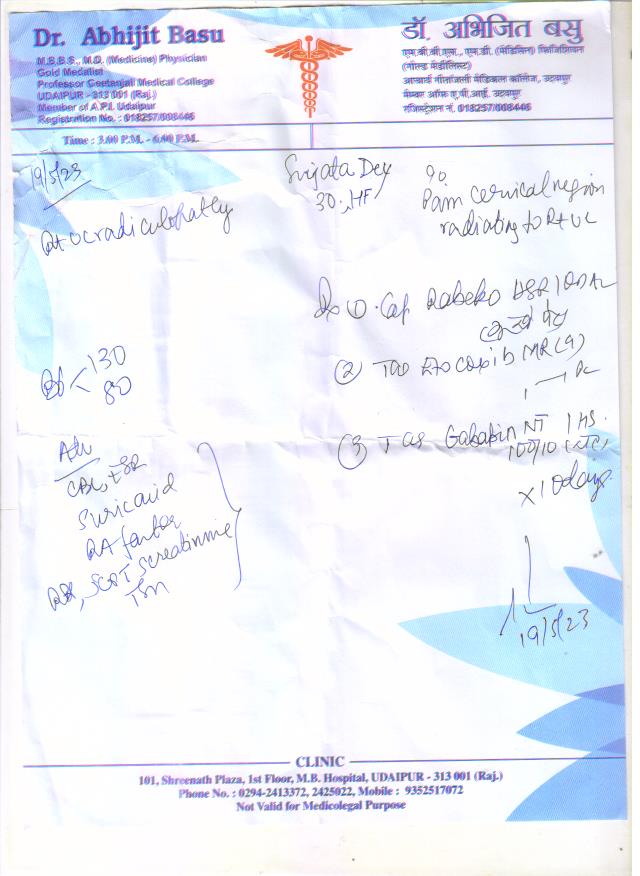 Dr. Abhijit Basu
M.B.B.S., M.D. (Medicine) Physician
Gold Medalist
Professor Geetanjali Medical College
UDAIPUR - 313 001 (Raj.)
Member of A.P.I. Udaipur
Registration No. : 018257/008446
Time : 3.00 P.M. - 6.00 P.M.
डॉ. अभिजित बसु
एम.बी.बी.एस., एम.डी. (मेडिसिन) फिजिशियन
(गोल्ड मेडलिस्ट)
आचार्य गीतांजली मेडिकल कॉलेज, उदयपुर
मेम्बर ऑफ ए.पी.आई. उदयपुर
रजिस्ट्रेशन नं. 018257/008446
19/5/23
Srijata Dey
30
Pain cervical region
radiating to Rt UL
radiculopathy
Rx ① Cap Rabeko DSR 1 OD AC
② Tab Etocopib MR (4)
③ Tab Gabapin NT 1 HS
100/10
x 10 days
130
80
Adv
CBC, ESR
S uric acid
RA factor
SGOT S creatinine
19/5/23
CLINIC
101, Shreenath Plaza, 1st Floor, M.B. Hospital, UDAIPUR - 313 001 (Raj.)
Phone No. : 0294-2413372, 2425022, Mobile : 9352517072
Not Valid for Medicolegal Purpose